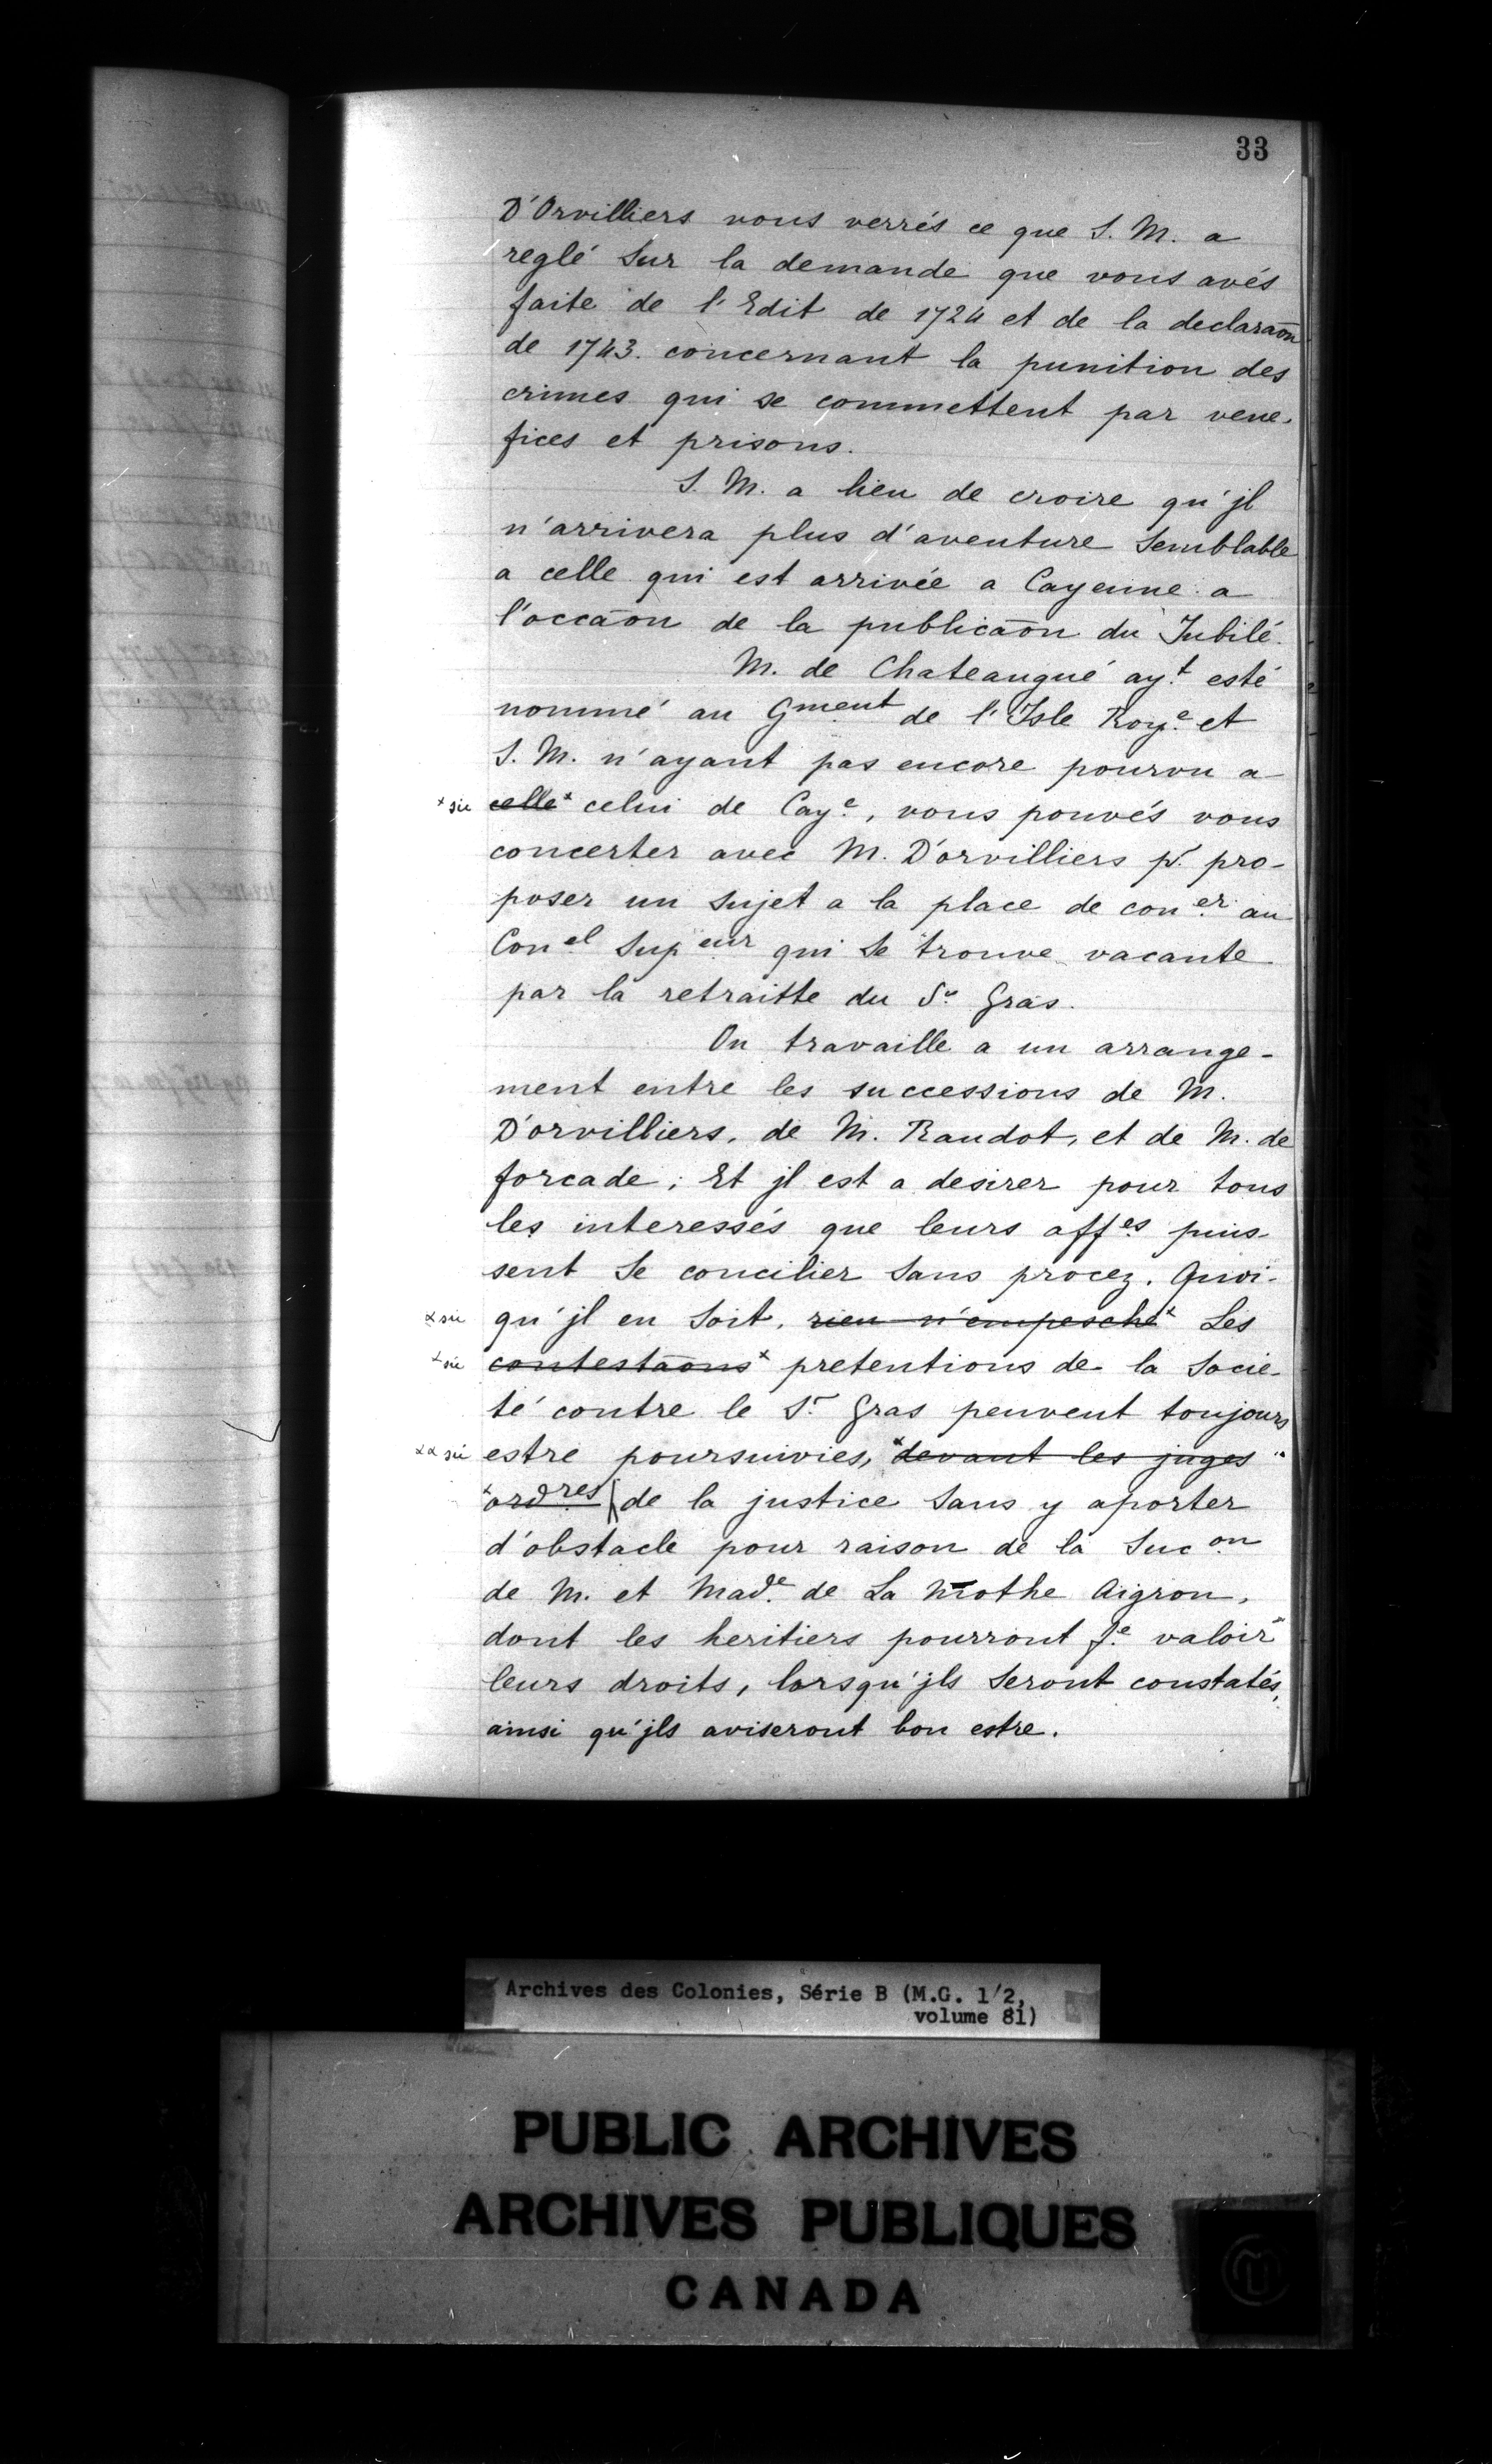 33
D'Orvilliers vous verrés ce que S. M. a
reglé Sur la demande que vous avés
faite de l'Edit de 1724 et de la declaraōn
de 1743. concernant la punition des
crimes qui se commettent par vene-
fices et prisons.
S. M. a lieu de croire qu'jl
n'arrivera plus d'aventure Semblable
a celle qui est arrivée a Cayenne a
l'occaōn de la publicaōn du Jubilé.
M. de Chateaugué ay.t esté
nommé au Gment de l'Isle Roy.e et
S. M. n'ayant pas encore pourvu a
x sic celle x celui de Cay.e, vous pouvés vous
concerter avec M. D'orvilliers p.r pro-
poser un Sujet a la place de con.er au
Con.el Sup.eur qui Se trouve vacante
par la retraitte du S.r Gras.
On travaille a un arrange-
ment entre les successions de M.
D'orvilliers, de M. Raudot, et de M. de
forcade; Et jl est a desirer pour tous
les interessés que leurs aff.es puis-
sent Se concilier Sans procez. Quoi-
x sic qu'jl en Soit, rien n'empesche x Les
x sic contestaōns x pretentions de la Socie-
té contre le S.r Gras peuvent toujours
x x sic estre poursuivies, x devant les juges
x ordres de la justice Sans y aporter
d'obstacle pour raison de la Suc.on
de M. et Mad.e de La Mothe Aigron,
dont les heritiers pourront f.e valoir
leurs droits, lorsqu'jls Seront constatés,
ainsi qu'jls aviseront bon estre.
Archives des Colonies, Série B (M.G. 1/2,
volume 81)
PUBLIC ARCHIVES
ARCHIVES PUBLIQUES
CANADA